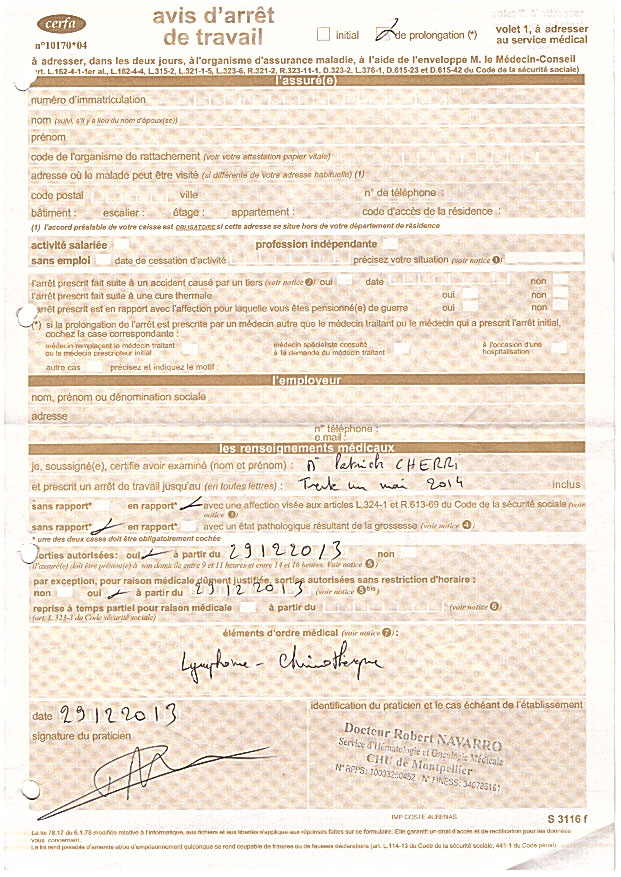 cerfa
n°10170*04
avis d'arrêt
de travail
initial
de prolongation (*)
volet 1, à adresser
au service médical
à adresser, dans les deux jours, à l'organisme d'assurance maladie, à l'aide de l'enveloppe M. le Médecin-Conseil
art. L.162-4-1-1er al., L.162-4-4, L.315-2, L.321-1-5, L.323-6, R.321-2, R.323-11-1, D.323-2, L.376-1, D.615-23 et D.615-42 du Code de la sécurité sociale)
l'assuré(e)
numéro d'immatriculation
nom (suivi, s'il y a lieu du nom d'époux(se))
prénom
code de l'organisme de rattachement (voir votre attestation papier vitale)
adresse où le malade peut être visité (si différente de votre adresse habituelle) (1)
code postal ville n° de téléphone :
bâtiment : escalier : étage : appartement : code d'accès de la résidence :
(1) l'accord préalable de votre caisse est OBLIGATOIRE si cette adresse se situe hors de votre département de résidence
activité salariée profession indépendante
sans emploi date de cessation d'activité précisez votre situation (voir notice 1)
l'arrêt prescrit fait suite à un accident causé par un tiers (voir notice 2) oui date non
l'arrêt prescrit fait suite à une cure thermale oui non
arrêt prescrit est en rapport avec l'affection pour laquelle vous êtes pensionné(e) de guerre oui non
(*) si la prolongation de l'arrêt est prescrite par un médecin autre que le médecin traitant ou le médecin qui a prescrit l'arrêt initial,
cochez la case correspondante :
médecin remplaçant le médecin traitant
ou le médecin prescripteur initial
médecin spécialiste consulté
à la demande du médecin traitant
à l'occasion d'une
hospitalisation
autre cas précisez et indiquez le motif :
l'employeur
nom, prénom ou dénomination sociale
adresse
n° téléphone :
e.mail :
les renseignements médicaux
je, soussigné(e), certifie avoir examiné (nom et prénom) : Mr Patrick CHERRI
et prescrit un arrêt de travail jusqu'au (en toutes lettres) : Trente un mai 2014 inclus
sans rapport* en rapport* avec une affection visée aux articles L.324-1 et R.613-69 du Code de la sécurité sociale (voir
notice 3)
sans rapport* en rapport* avec un état pathologique résultant de la grossesse (voir notice 4)
* une des deux cases doit être obligatoirement cochée
sorties autorisées: oui à partir du 29122013 non
(l'assuré(e) doit être présent(e) à son domicile entre 9 et 11 heures et entre 14 et 16 heures. Voir notice 5)
par exception, pour raison médicale dûment justifiée, sorties autorisées sans restriction d'horaire :
non oui à partir du 29122013 (voir notice 5 bis)
reprise à temps partiel pour raison médicale à partir du (voir notice 6)
(art. L.323-3 du Code sécurité sociale)
éléments d'ordre médical (voir notice 7) :
Lymphome - Chimiothérapie
date 29122013
signature du praticien
identification du praticien et le cas échéant de l'établissement
Docteur Robert NAVARRO
Service d'Hématologie et Oncologie Médicale
CHU de Montpellier
IMP COSTE AUBENAS
S 3116 f
La loi 78.17 du 6.1.78 modifiée relative à l'informatique, aux fichiers et aux libertés s'applique aux réponses faites sur ce formulaire. Elle garantit un droit d'accès et de rectification pour les données
vous concernant.
La loi rend passible d'amende et/ou d'emprisonnement quiconque se rend coupable de fraudes ou de fausses déclarations (art. L.114-13 du Code de la sécurité sociale, 441-1 du Code pénal).